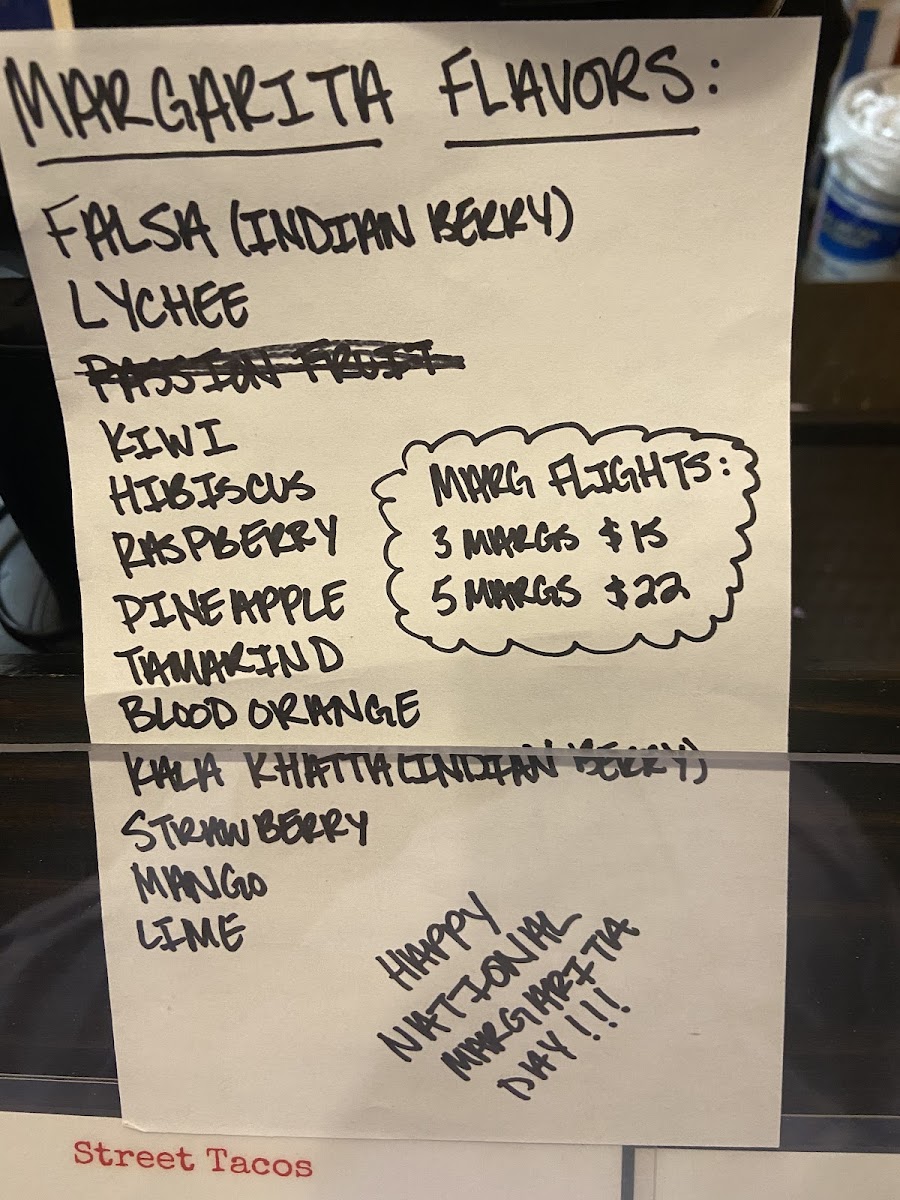 MARGARITA FLAVORS:
FALSA (INDIAN BERRY)
LYCHEE
PASSION FRUIT
KIWI
HIBISCUS
RASPBERRY
PINEAPPLE
TAMARIND
BLOOD ORANGE
KALA KHATTA (INDIAN BERRY)
STRAWBERRY
MANGO
LIME
MARG FLIGHTS:
3 MARGS $15
5 MARGS $22
HAPPY
NATIONAL
MARGARITA
DAY!!!
Street Tacos